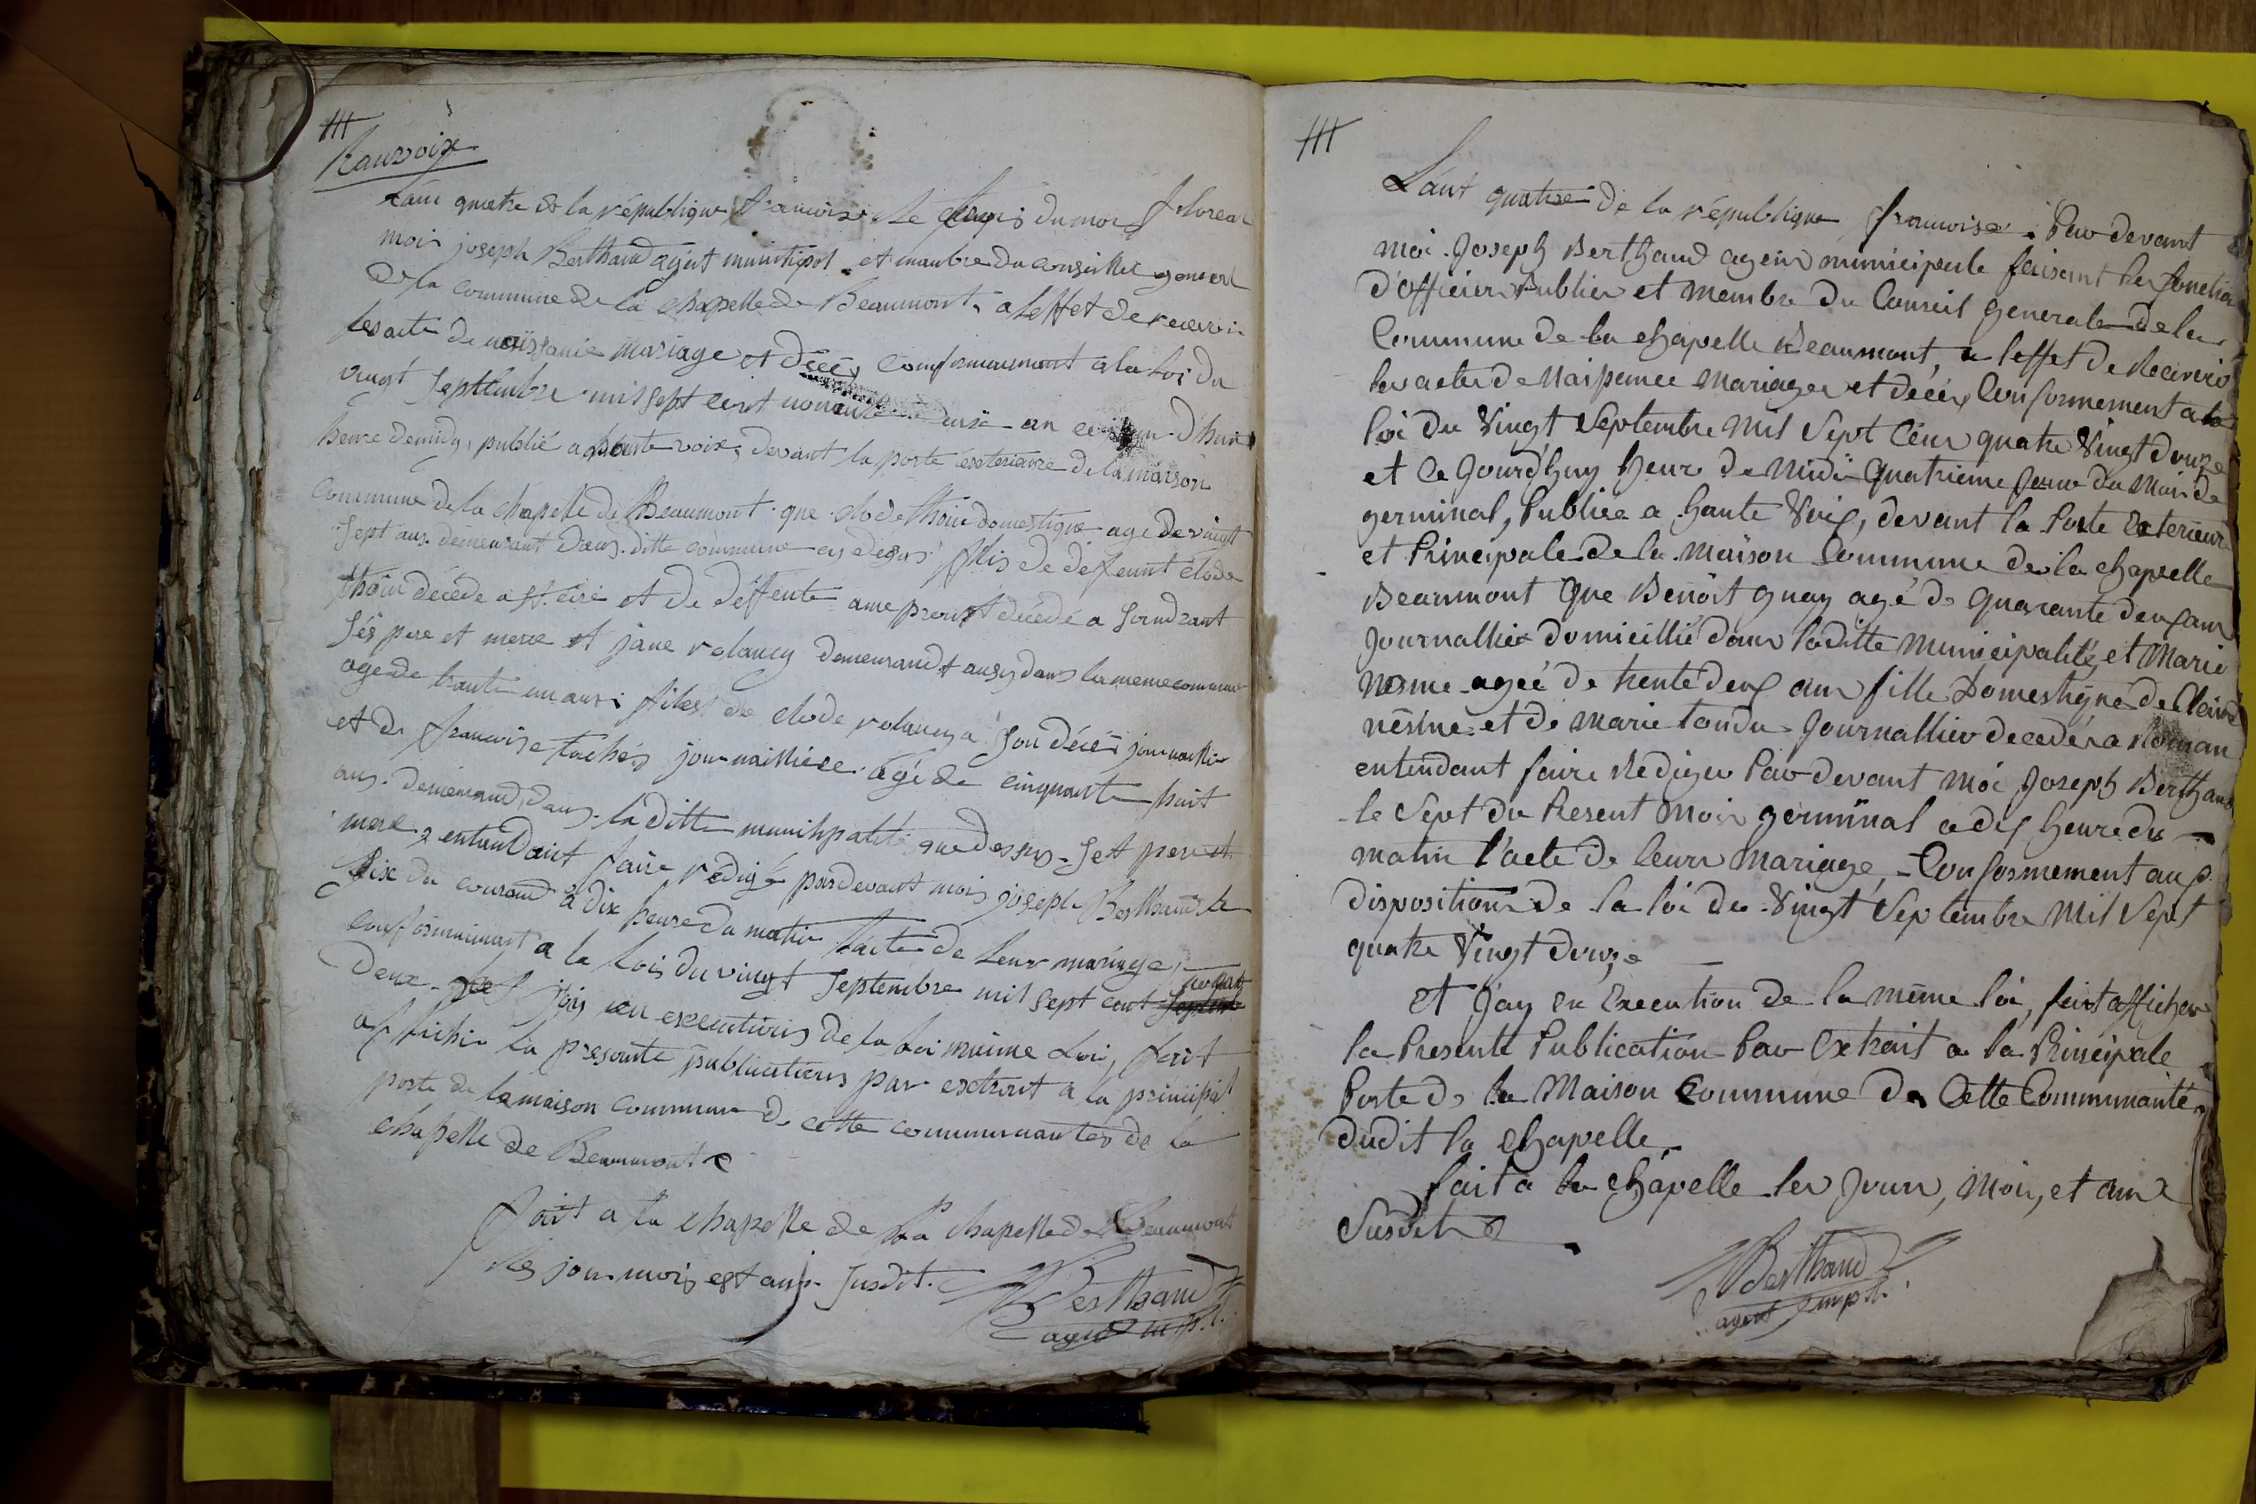 Lan quatre de la république francoise le du moi floreal
mois joseph Berthaud agent munitipol et manbre du conseilhe general
de la commune de la chapelle de Beaumont, a leffet de recevoir
les acte de naissance mariage et décéz conformaumant a la loi du
vingt septembre mil sept cent an
heure demidy, publié a haute voix, devant la porte exsterieure de la maison
commune de la chapelle de Beaumont que clode thoin domestique age de vaingt
sept aus demeurant daus ditte commune cy desus filis de defeunt clode
thoin décéde a et de déffente ane décédé a
sés pere et mere et jane rolancy demeurand ausy dans la meme commune
age de trante un aus files de clode rolancy a son décéi journaillier
et de francoise journailliére agé de cinquante huit
aus demeurand daus la ditte munihpalité que desus set pere et
mere entendant faire rédigé pardevant mois joseph Berthaud le
dix du courand a dix heure du matin lacte de leur mariage
conformaimant a la lois du vingt septembre mil sept cent
deux en executions de la loi maime loi, ferit
affichir la presante publications par exstrait a la principal
porte de la maison commune de cette communuautés de la
chapelle de Beaumont
fait a la chapelle de la chapelle de Beaumont
les jour mois est ans susdit.
Berthaud
agent m p.l.
III
L'ant quatre de la république francoise. Par devant
moi Joseph Berthaud agent municipale faisant les fonction
d'officier Publier et membre du Conseil generale de la
Commune de la chapelle Beaumont, a leffet de Recevoir
les actes de Naissance mariages et décéz, Conformement a la
loi du Vingt Septembre Mil Sept Cent quatre Vingt douze
et Ce Jourd'huy heure de Midi Quatrieme Jour du Mois de
germinal, Publiée a haute Voix, devant la Porte Exterieure
et Principale de la Maison Commune de la chapelle
Beaumont Que Benoit guay agé de Quarante deux ans
Journallier domicillié dans laditte Municipalité, et Marie
Nesme agée de trente deux ans fille Domestique de Claude
nesme et de Marie tondu Journallier decedés a
entendant faire Rediger Par devant Moi Joseph Berthaud
le Sept du Present Mois germinal a dix heure du
matin l'acte de leurs Mariage, Conformement aux
dispositions de la loi du Vingt Septembre Mil Sept
quatre Vingt douze
et J'ay en Execution de la même loi, fait afficher
la Presente Publication Par Extrait a la Principale
Porte de la Maison Commune de Cette Communauté
dudit la chapelle.
fait a la Chapelle les Jours, Mois, et ans
Susdit
Berthaud
agent m p.l.